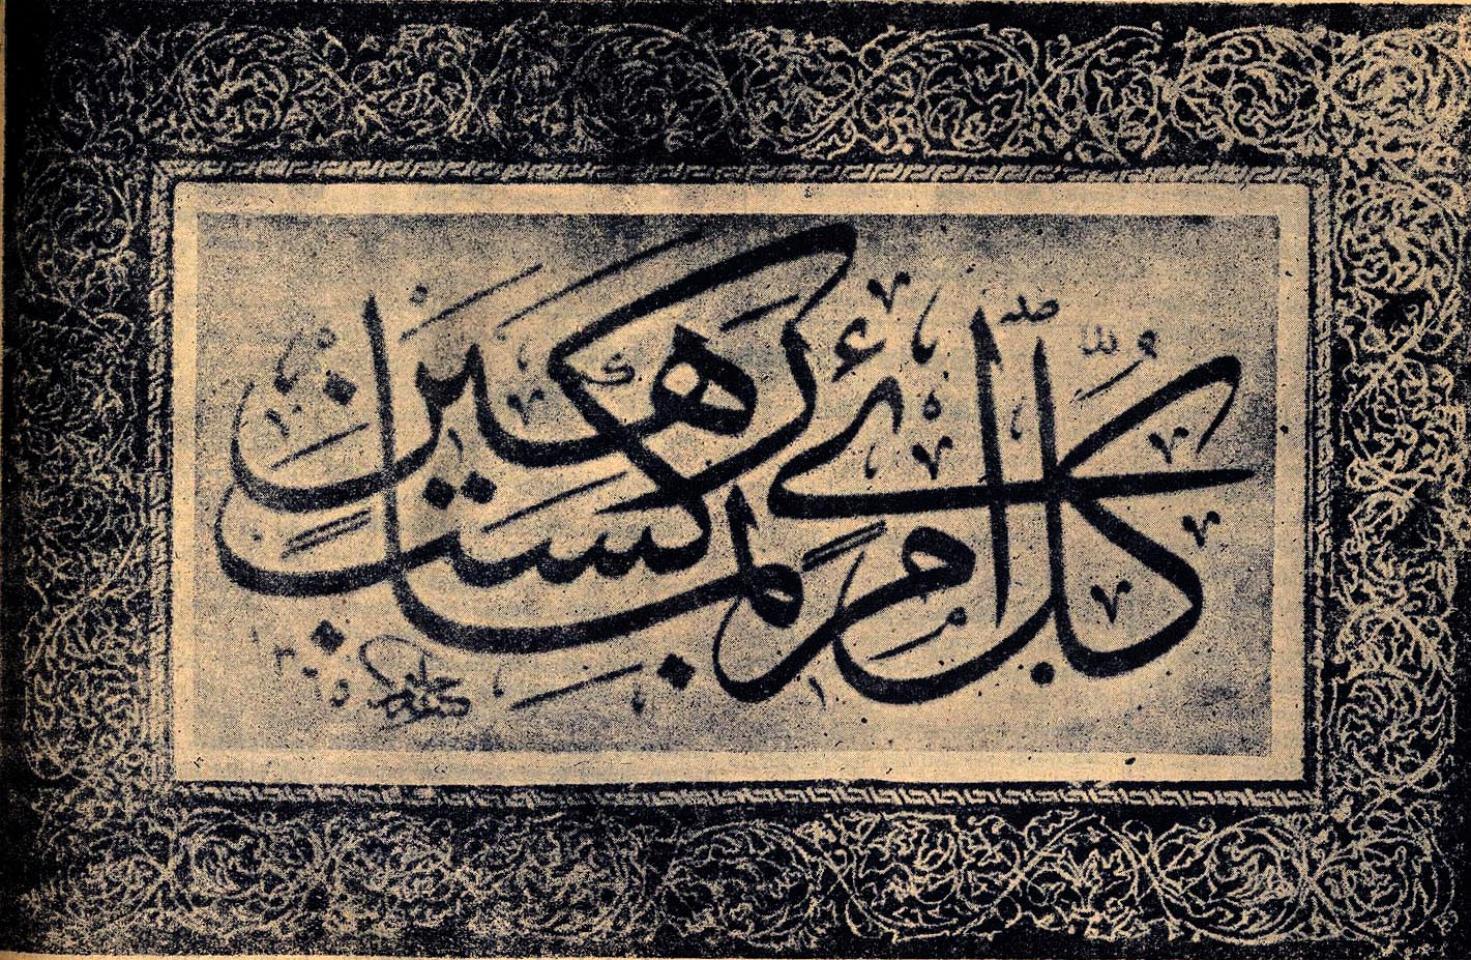 كل امرئ بما كسب رهين